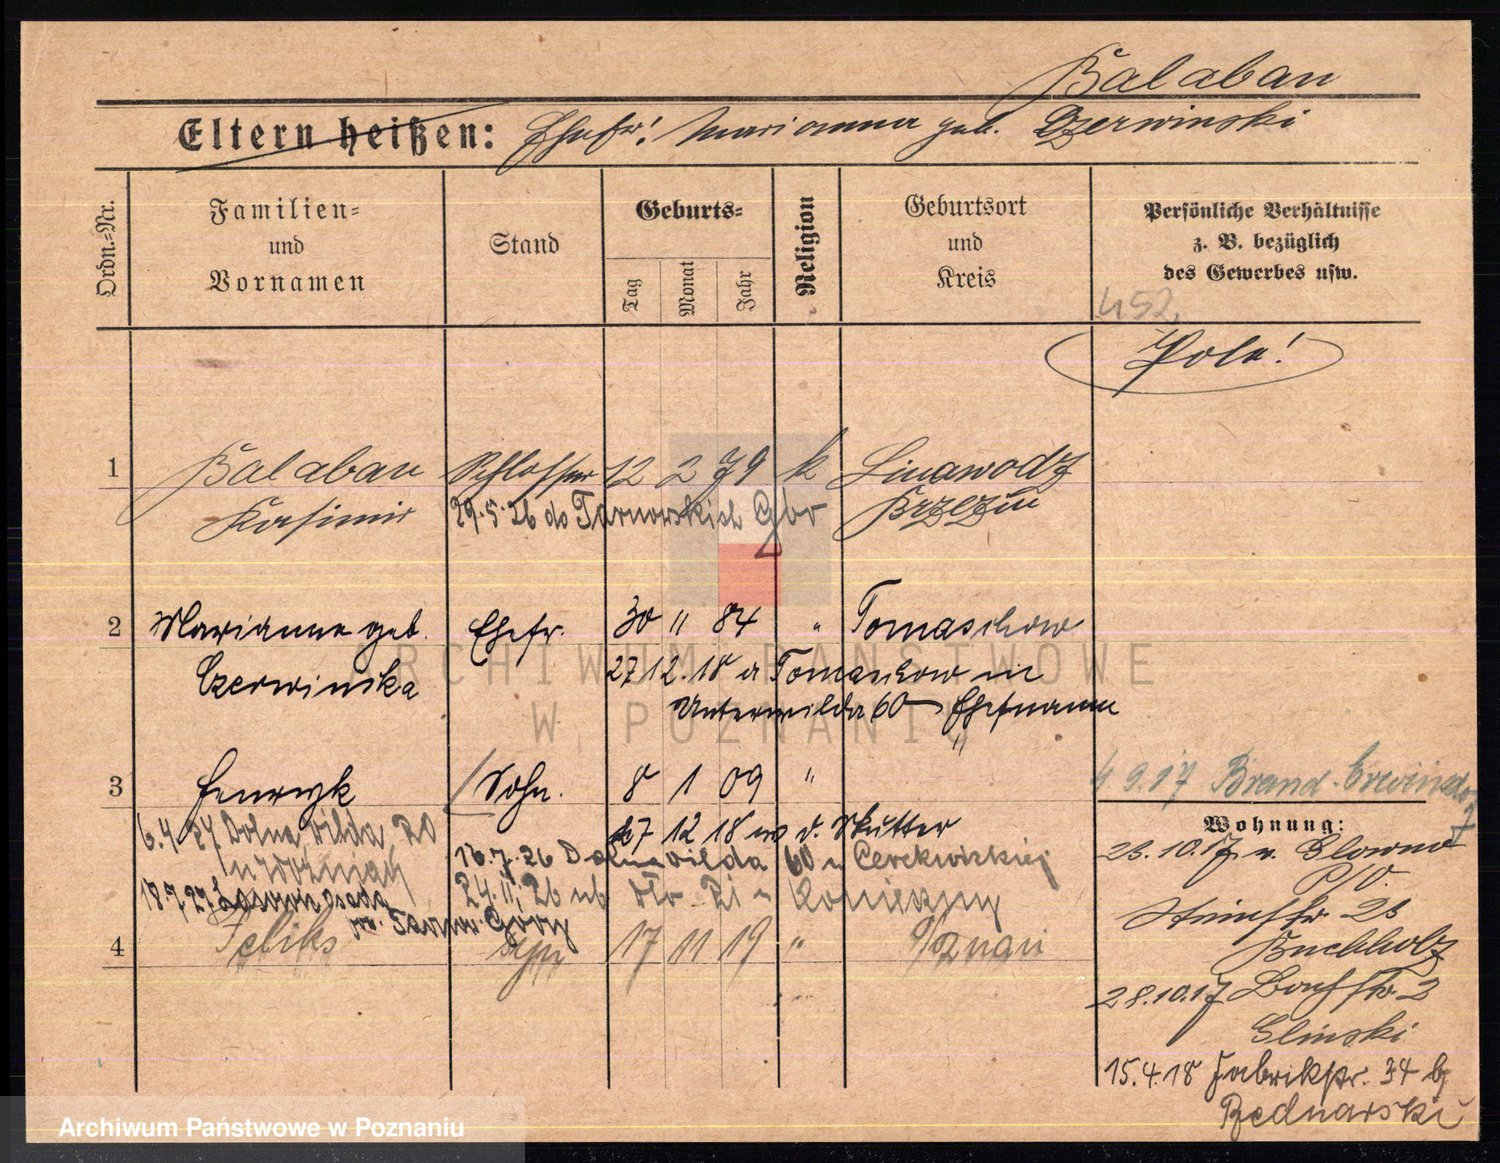 Balaban
Eltern heißen: Ehefr! Marianna geb. Dzerwinski
Ordn.=Nr.
Familien=
und
Vornamen
Stand
Geburts=
Tag
Monat
Jahr
Religion
Geburtsort
und
Kreis
Persönliche Verhältnisse
z. B. bezüglich
des Gewerbes usw.
452
Pole!
1 Balaban Schlosser 12 2 79 k Linawodz
Kasimir Brzezin
29.5.26 do Tarnowskich Gór
2 Marianne geb. Ehefr. 30 11 84 " Tomaschow
Czerwinska
27 12.18 a Tomaschow in
Unterwilda 60 Ehefrau
3 Henryk Sohn. 8 1 09 "
27 12 18 w d. Mutter
6.4.27 Dolna Wilda 20
u Woźniak
16.7.26 Dolna Wilda 60 u
18.7.27
24.11.26
Tarnow. Góry
4 Feliks syn 17 11 19 "
4.9.17 Brand
Wohnung:
23.10.17 v. Glowno
P/O.
23
Buchholz
28.10.17 Bachstr. 2
Glinski
15.4.18 Fabrikstr. 34 b/
Bednarski
ARCHIWUM PAŃSTWOWE
W POZNANIU
Archiwum Państwowe w Poznaniu